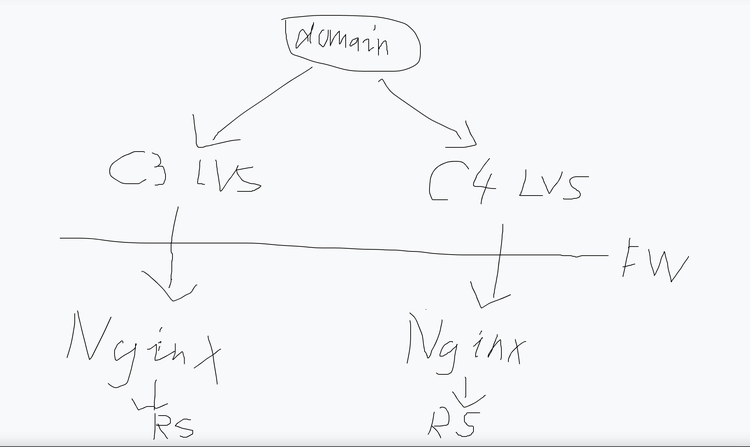 domain
C3 LVS
C4 LVS
FW
Nginx
Nginx
RS
RS